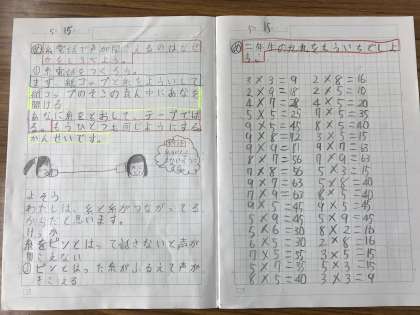 5/15
め 糸電話で声が聞こえるのはなぜ
かをしらべよう。
① 糸電話をつくろう。
まず、紙コップと糸をよういして
紙コップのそこのまん中にあなを
開ける
あなに糸をとおして、テープでは
る。もうひとつも同じようにする
かんせいです。
よそう
わたしは、糸と糸がつながってる
からだと思います。
けっか
糸をピンとはって話さないと声が
聞こえない
ピンとはった糸がふるえて声が
きこえる
5/15
め 二年生の九九をもういちどしよ
う。
3×3=9 2×8=16
2×9=18 2×5=10
4×7=28 4×5=20
5×5=25 7×5=35
9×5=45 9×5=45
8×8=64
9×9=81 9×7=63
8×7=56 7×9=63
7×8=56 5×3=15
9×7=63 5×8=40
7×9=63 8×5=40
5×9=45
5×9=45 5×9=45
5×6=30 8×2=16
6×5=30 2×8=16
7×5=35 3×5=15
5×7=35 5×3=15
8×5=40 3×3=9